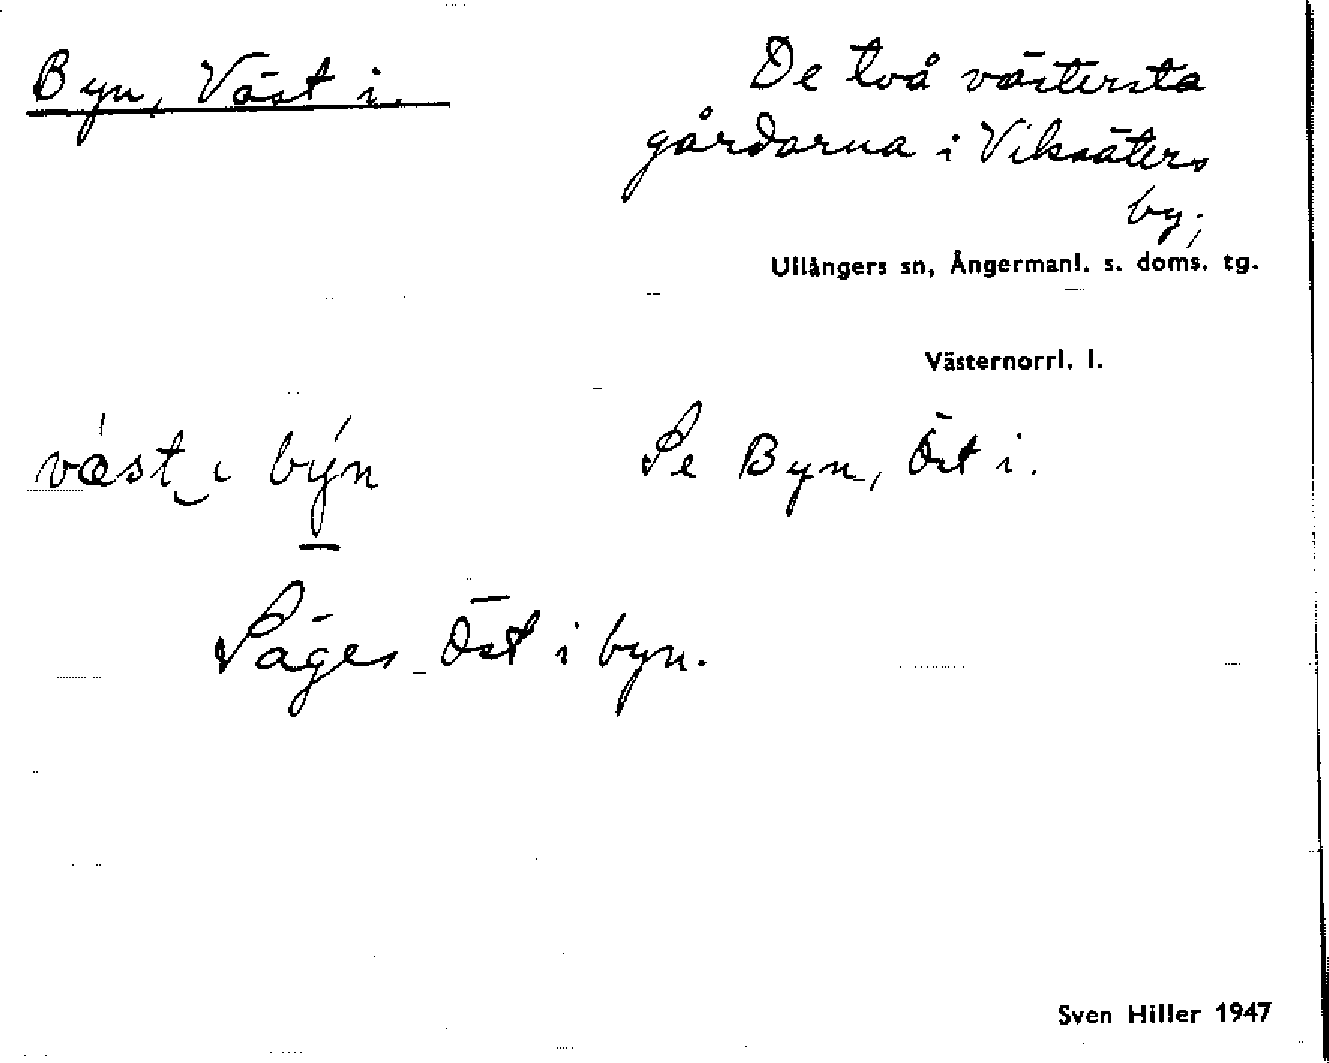 Byn, Väst i.
De två västersta
gårdarna i Viksäters
by;
Ullångers sn, Ångermanl. s. doms. tg.
Västernorrl. l.
vǽst‿ı býn
Se Byn, Öst i.
Säges Öst i byn.
Sven Hiller 1947